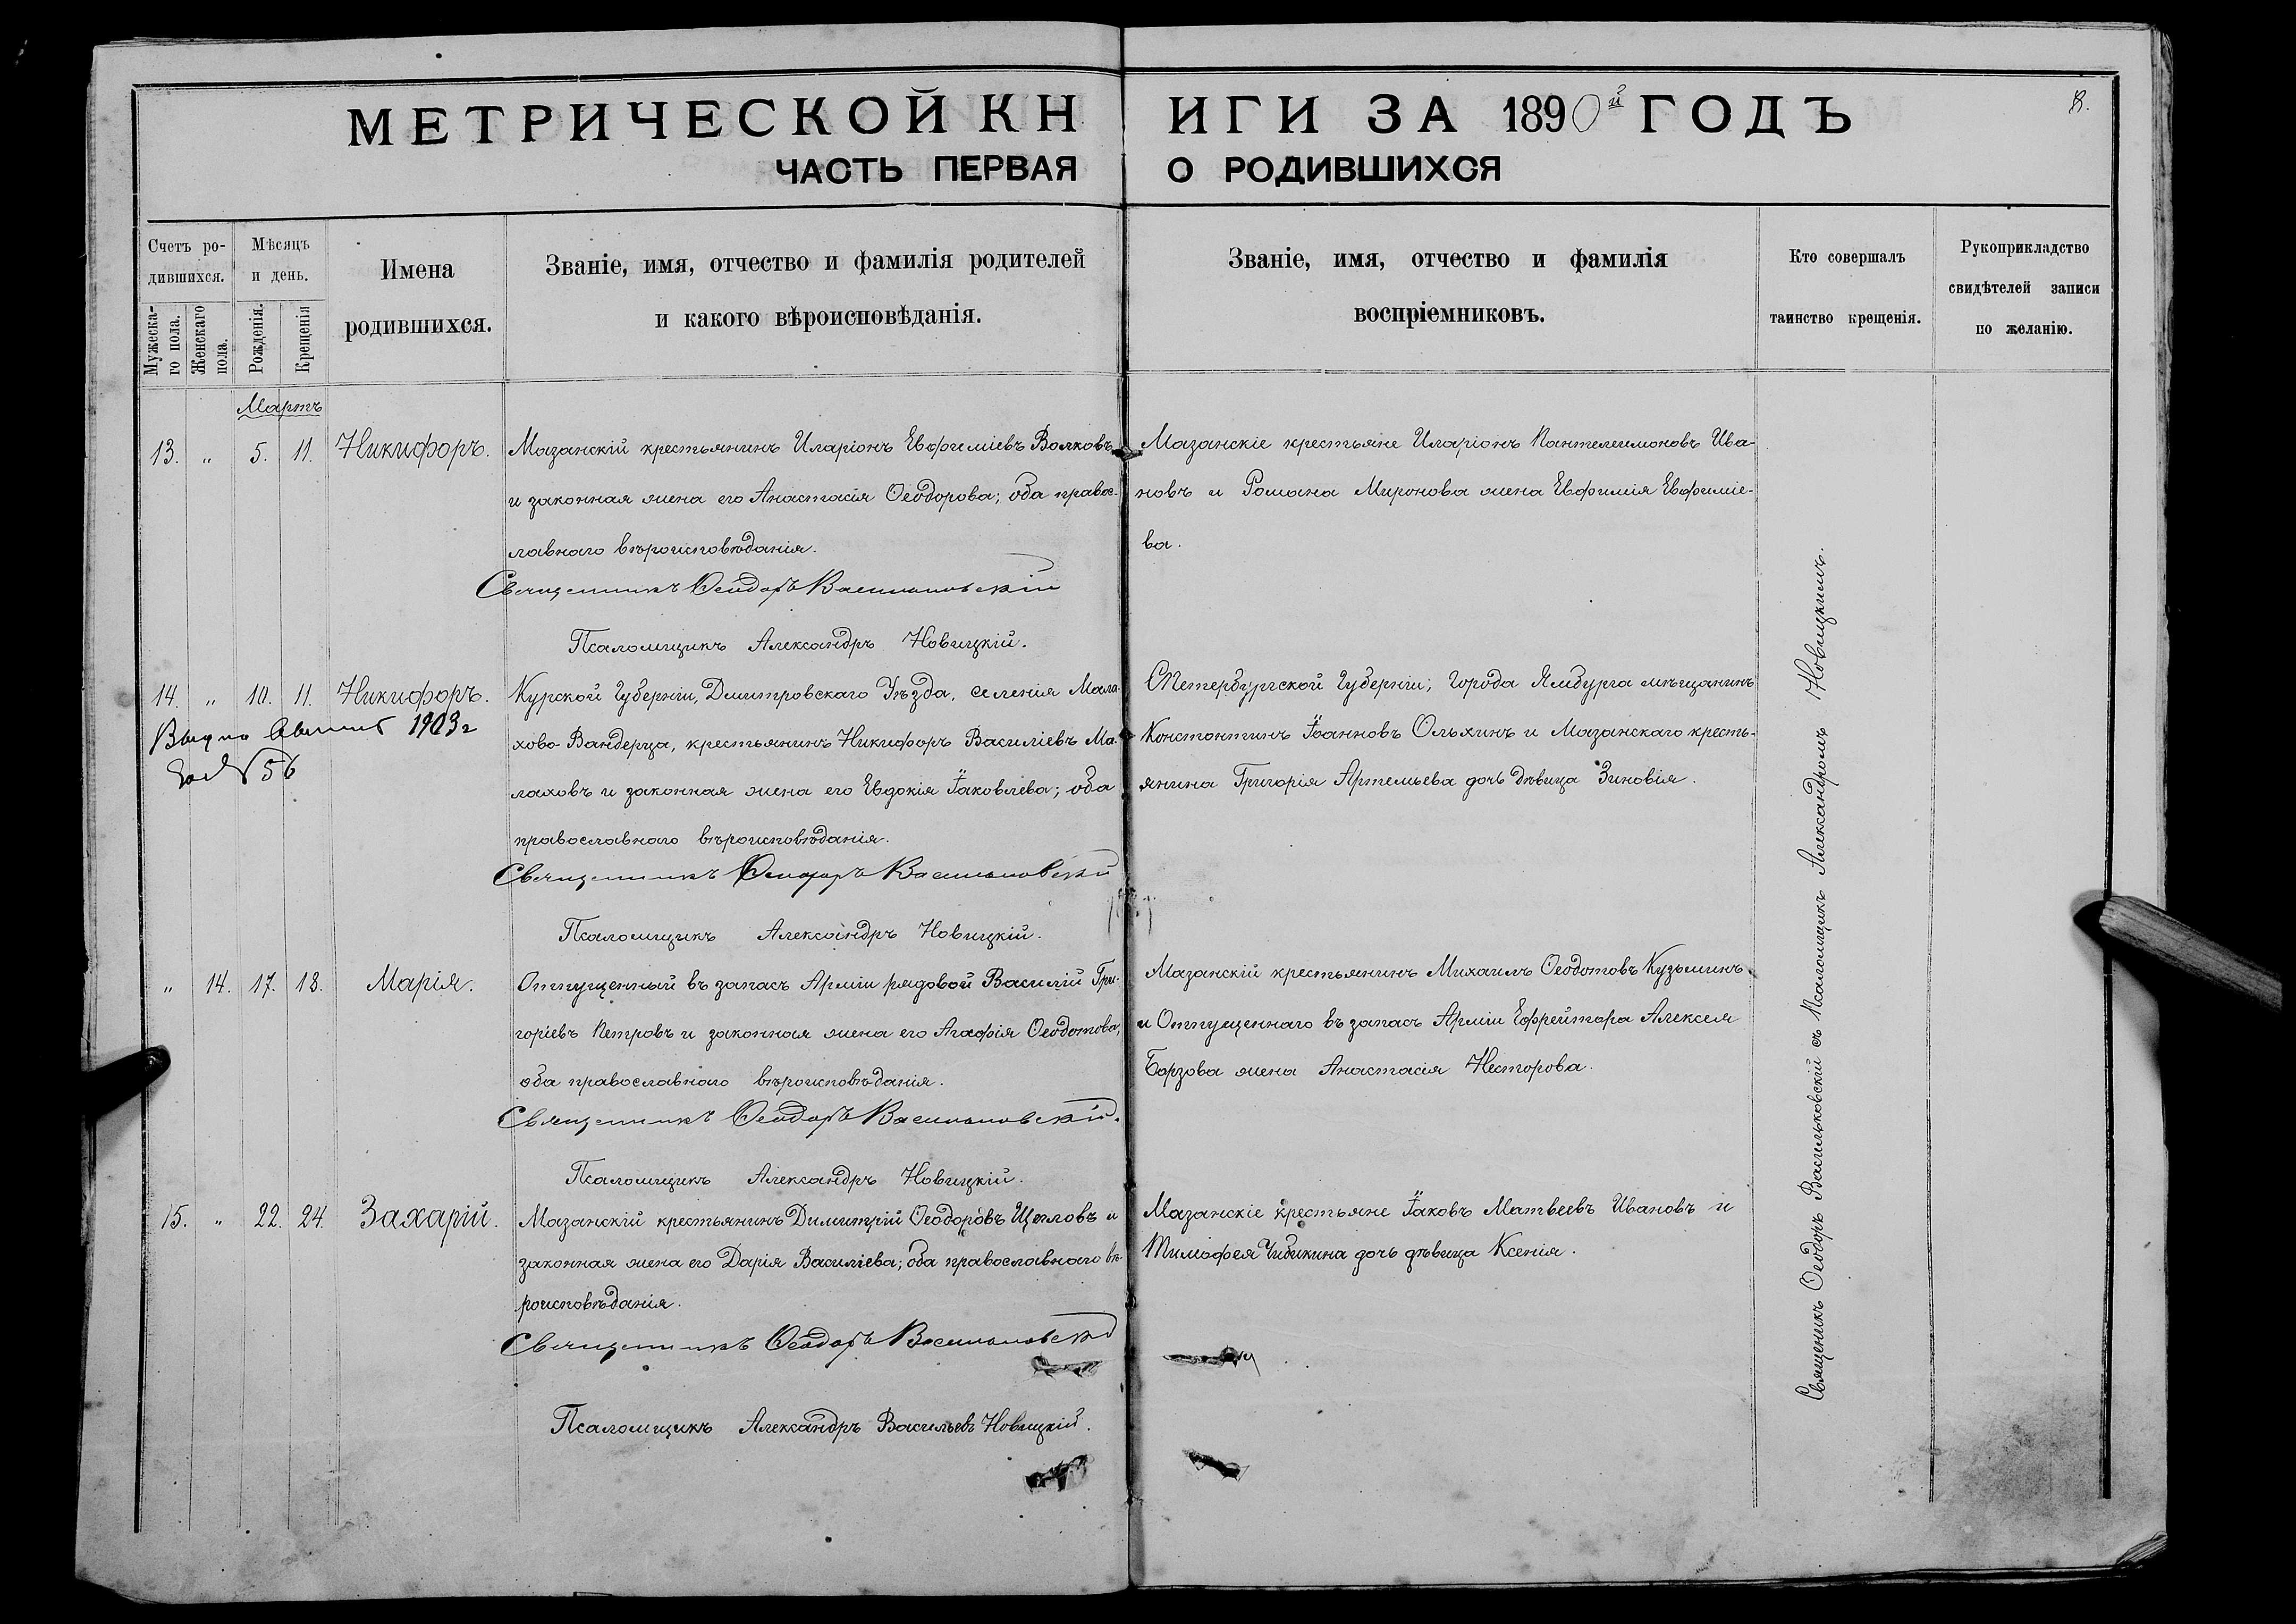 МЕТРИЧЕСКОЙ КНИГИ ЗА 1890й ГОДЪ
8.
ЧАСТЬ ПЕРВАЯ О РОДИВШИХСЯ
Счетъ ро-
дившихся.
Мужеска-
го пола.
Женскаго
пола.
Мѣсяцъ
и день.
Рожденія.
Крещенія
Имена
родившихся.
Званіе, имя, отчество и фамилія родителей
и какого вѣроисповѣданія.
Званіе, имя, отчество и фамилія
воспріемниковъ.
Кто совершалъ
таинство крещенія.
Рукоприкладство
свидѣтелей записи
по желанію.
Мартъ
13. „ 5. 11. Никифоръ.
Мазанскій крестьянинъ Иларіонъ Евфиміевъ Волковъ
и законная жена его Анастасія Ѳеодорова; оба правос-
лавнаго вѣроисповѣданія.
Священникъ Ѳеодоръ Васильковскій
Псаломщикъ Александръ Новицкій.
Мазанскіе крестьяне Иларіонъ Пантелеимоновъ Ива-
новъ и Романа Миронова жена Евфимія Евфиміе-
ва.
14. „ 10. 11. Никифоръ.
1903 г
№ 56
Курской Губерніи, Дмитровскаго Уѣзда, селенія Мала-
хово-Вандерца, крестьянинъ Никифоръ Василіевъ Ма-
лаховъ и законная жена его Евдокія Іаковлева; оба
православнаго вѣроисповѣданія.
Священникъ Ѳеодоръ Васильковскій
Псаломщикъ Александръ Новицкій.
СПетербургской Губерніи; Города Ямбурга мѣщанинъ
Константинъ Іоанновъ Ольхинъ и Мазанскаго кресть-
янина Григорія Артемьева дочь дѣвица Зиновія.
„ 14. 17. 18. Марія.
Отпущенный въ запасъ Арміи рядовой Василій Гри-
горіевъ Петровъ и законная жена его Агафія Ѳеодотова,
оба православнаго вѣроисповѣданія.
Священникъ Ѳеодоръ Васильковскій.
Псаломщикъ Александръ Новицкій.
Мазанскій крестьянинъ Михаилъ Ѳеодотовъ Кузьминъ
и Отпущеннаго въ запасъ Арміи Ефрейтора Алексея
Борзова жена Анастасія Несторова.
15. „ 22. 24. Захарій.
Мазанскій крестьянинъ Димитрій Ѳеодоровъ Щегловъ и
законная жена его Дарія Василіева; оба православнаго вѣ-
роисповѣданія.
Священникъ Ѳеодоръ Васильковскій
Псаломщикъ Александръ Васильевъ Новицкій.
Мазанскіе крестьяне Іаковъ Матвеевъ Ивановъ и
Тимофея Чибикина дочь дѣвица Ксенія.
Священникъ Ѳеодоръ Васильковскій съ Псаломщикъ Александромъ Новицкимъ.